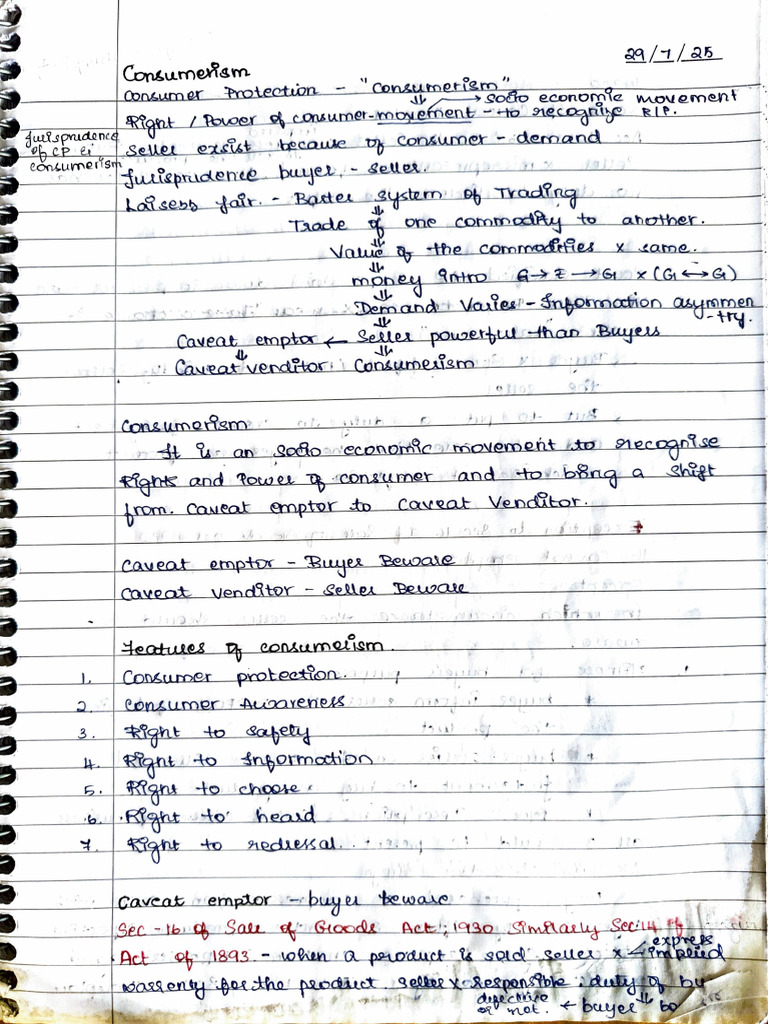 29/7/25
Consumerism
Consumer Protection - "Consumerism"
⇓ → Socio economic movement
Right / Power of consumer-movement - to recognize R|P.
Jurisprudence
of CP &
consumerism
Seller exsist because of consumer - demand
Jurisprudence buyer - seller.
Laisess fair. - Barter system of Trading
⇓
Trade of one commodity to another.
⇓
Value of the commodities x same.
⇓
money intro G → Z → G x (G ↔ G)
⇓
Demand Varies - Information asymmen
-try.
⇓
Caveat emptor ← Seller powerful than Buyers
⇓ ⇓
Caveat venditor. Consumerism
Consumerism
It is an socio economic movement to recognise
Rights and Power of consumer and to bring a shift
from. Caveat emptor to Caveat Venditor.
Caveat emptor - Buyer Beware
Caveat venditor - Seller Beware
Features of consumerism.
1. Consumer protection.
2. Consumer Awareness
3. Right to safety
4. Right to Information
5. Right to choose.
6. Right to heard
7. Right to redressal.
Caveat emptor - buyer beware
Sec -16 of Sale of Goods Act, 1930 Similarly Sec:14 of
Act of 1893. - when a product is sold seller x express
implied
warrenty for the product. seller x responsible. duty of bu
defective
or not. ← buyer ⇓ bo